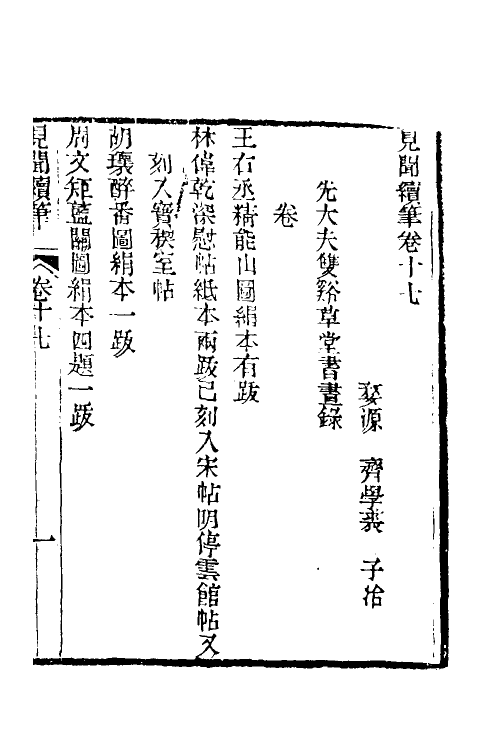 見聞續筆卷十七
婺源　齊學裘　子冶
先大夫雙谿草堂書畫錄
卷
王右丞精能山圖絹本有跋
林偉乾深慰帖紙本兩跋已刻入宋帖明停雲館帖又
刻入寶稧室帖
胡瓌醉番圖絹本一跋
周文矩藍關圖絹本四題一跋
見聞續筆　卷十七　一